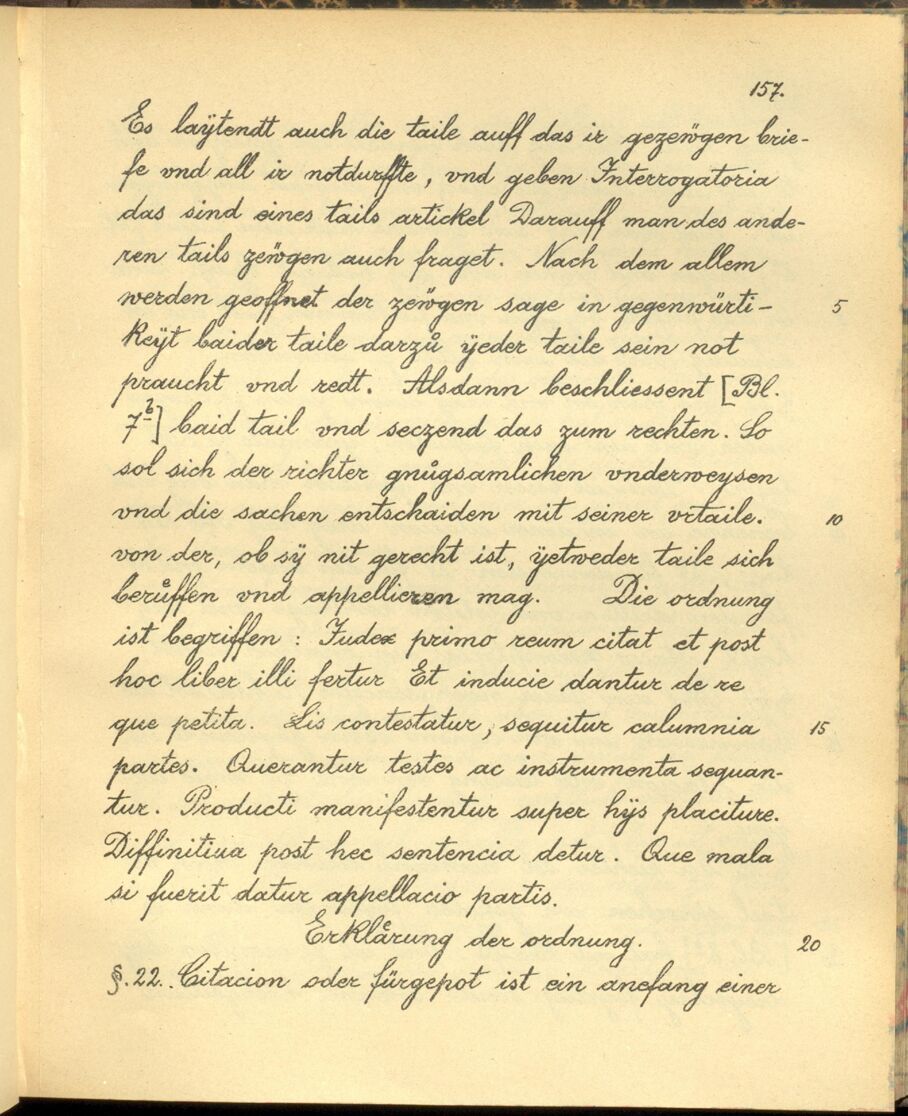 157.
Es laÿtendt auch die taile auff das ir gezeẅgen brie-
fe vnd all ir notdurffte, vnd geben Interrogatoria
das sind eines tails artickel Darauff man des ande-
ren tails zeẅgen auch fraget. Nach dem allem
werden geoffnet der zeẅgen sage in gegenwürti- 5
keÿt baider taile darzů ÿeder taile sein not
praucht vnd redt. Alsdann beschliessent [Bl.
7b] baid tail vnd seczend das zum rechten. So
sol sich der richter gnůgsamlichen vnderweysen
vnd die sachen entschaiden mit seiner vrtaile. 10
von der, ob sÿ nit gerecht ist, ÿetweder taile sich
berůffen vnd appellieren mag. Die ordnung
ist begriffen : Iudex primo reum citat et post
hoc liber illi fertur Et inducie dantur de re
que petita. Lis contestatur, sequitur calumnia 15
partes. Querantur testes ac instrumenta sequan-
tur. Producti manifestentur super hÿs placiture.
Diffinitiua post hec sentencia detur. Que mala
si fuerit datur appellacio partis.
Erklårung der ordnung. 20
§. 22. Citacion oder fürgepot ist ein anefang einer